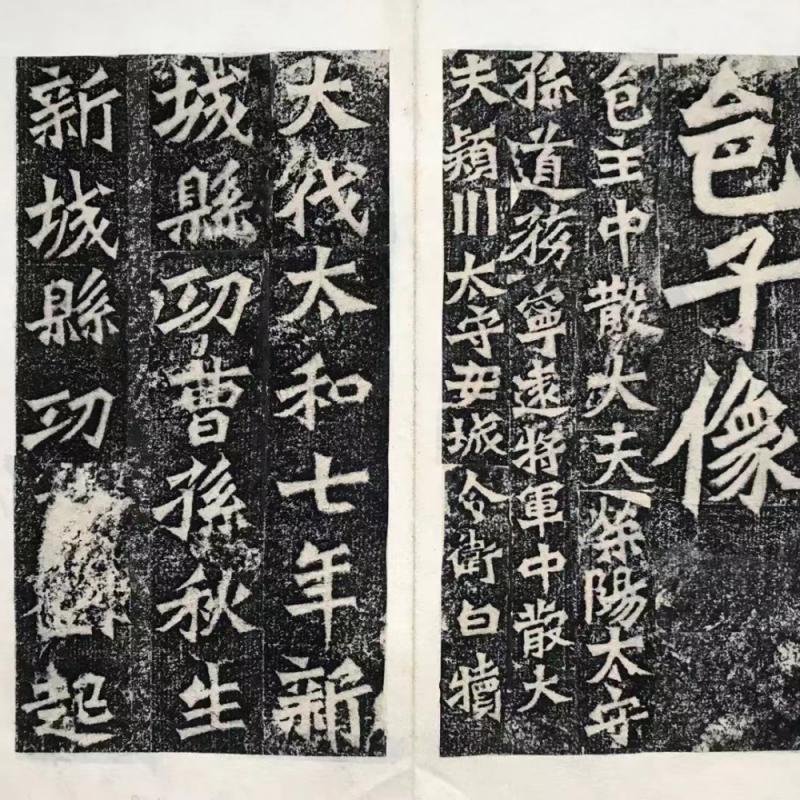 邑子像
邑主中散大夫滎陽太守
孫道務寧遠將軍中散大
夫潁川太守安城令衛白犢
大伐太和七年新
城縣功曹孫秋生
新城縣功起